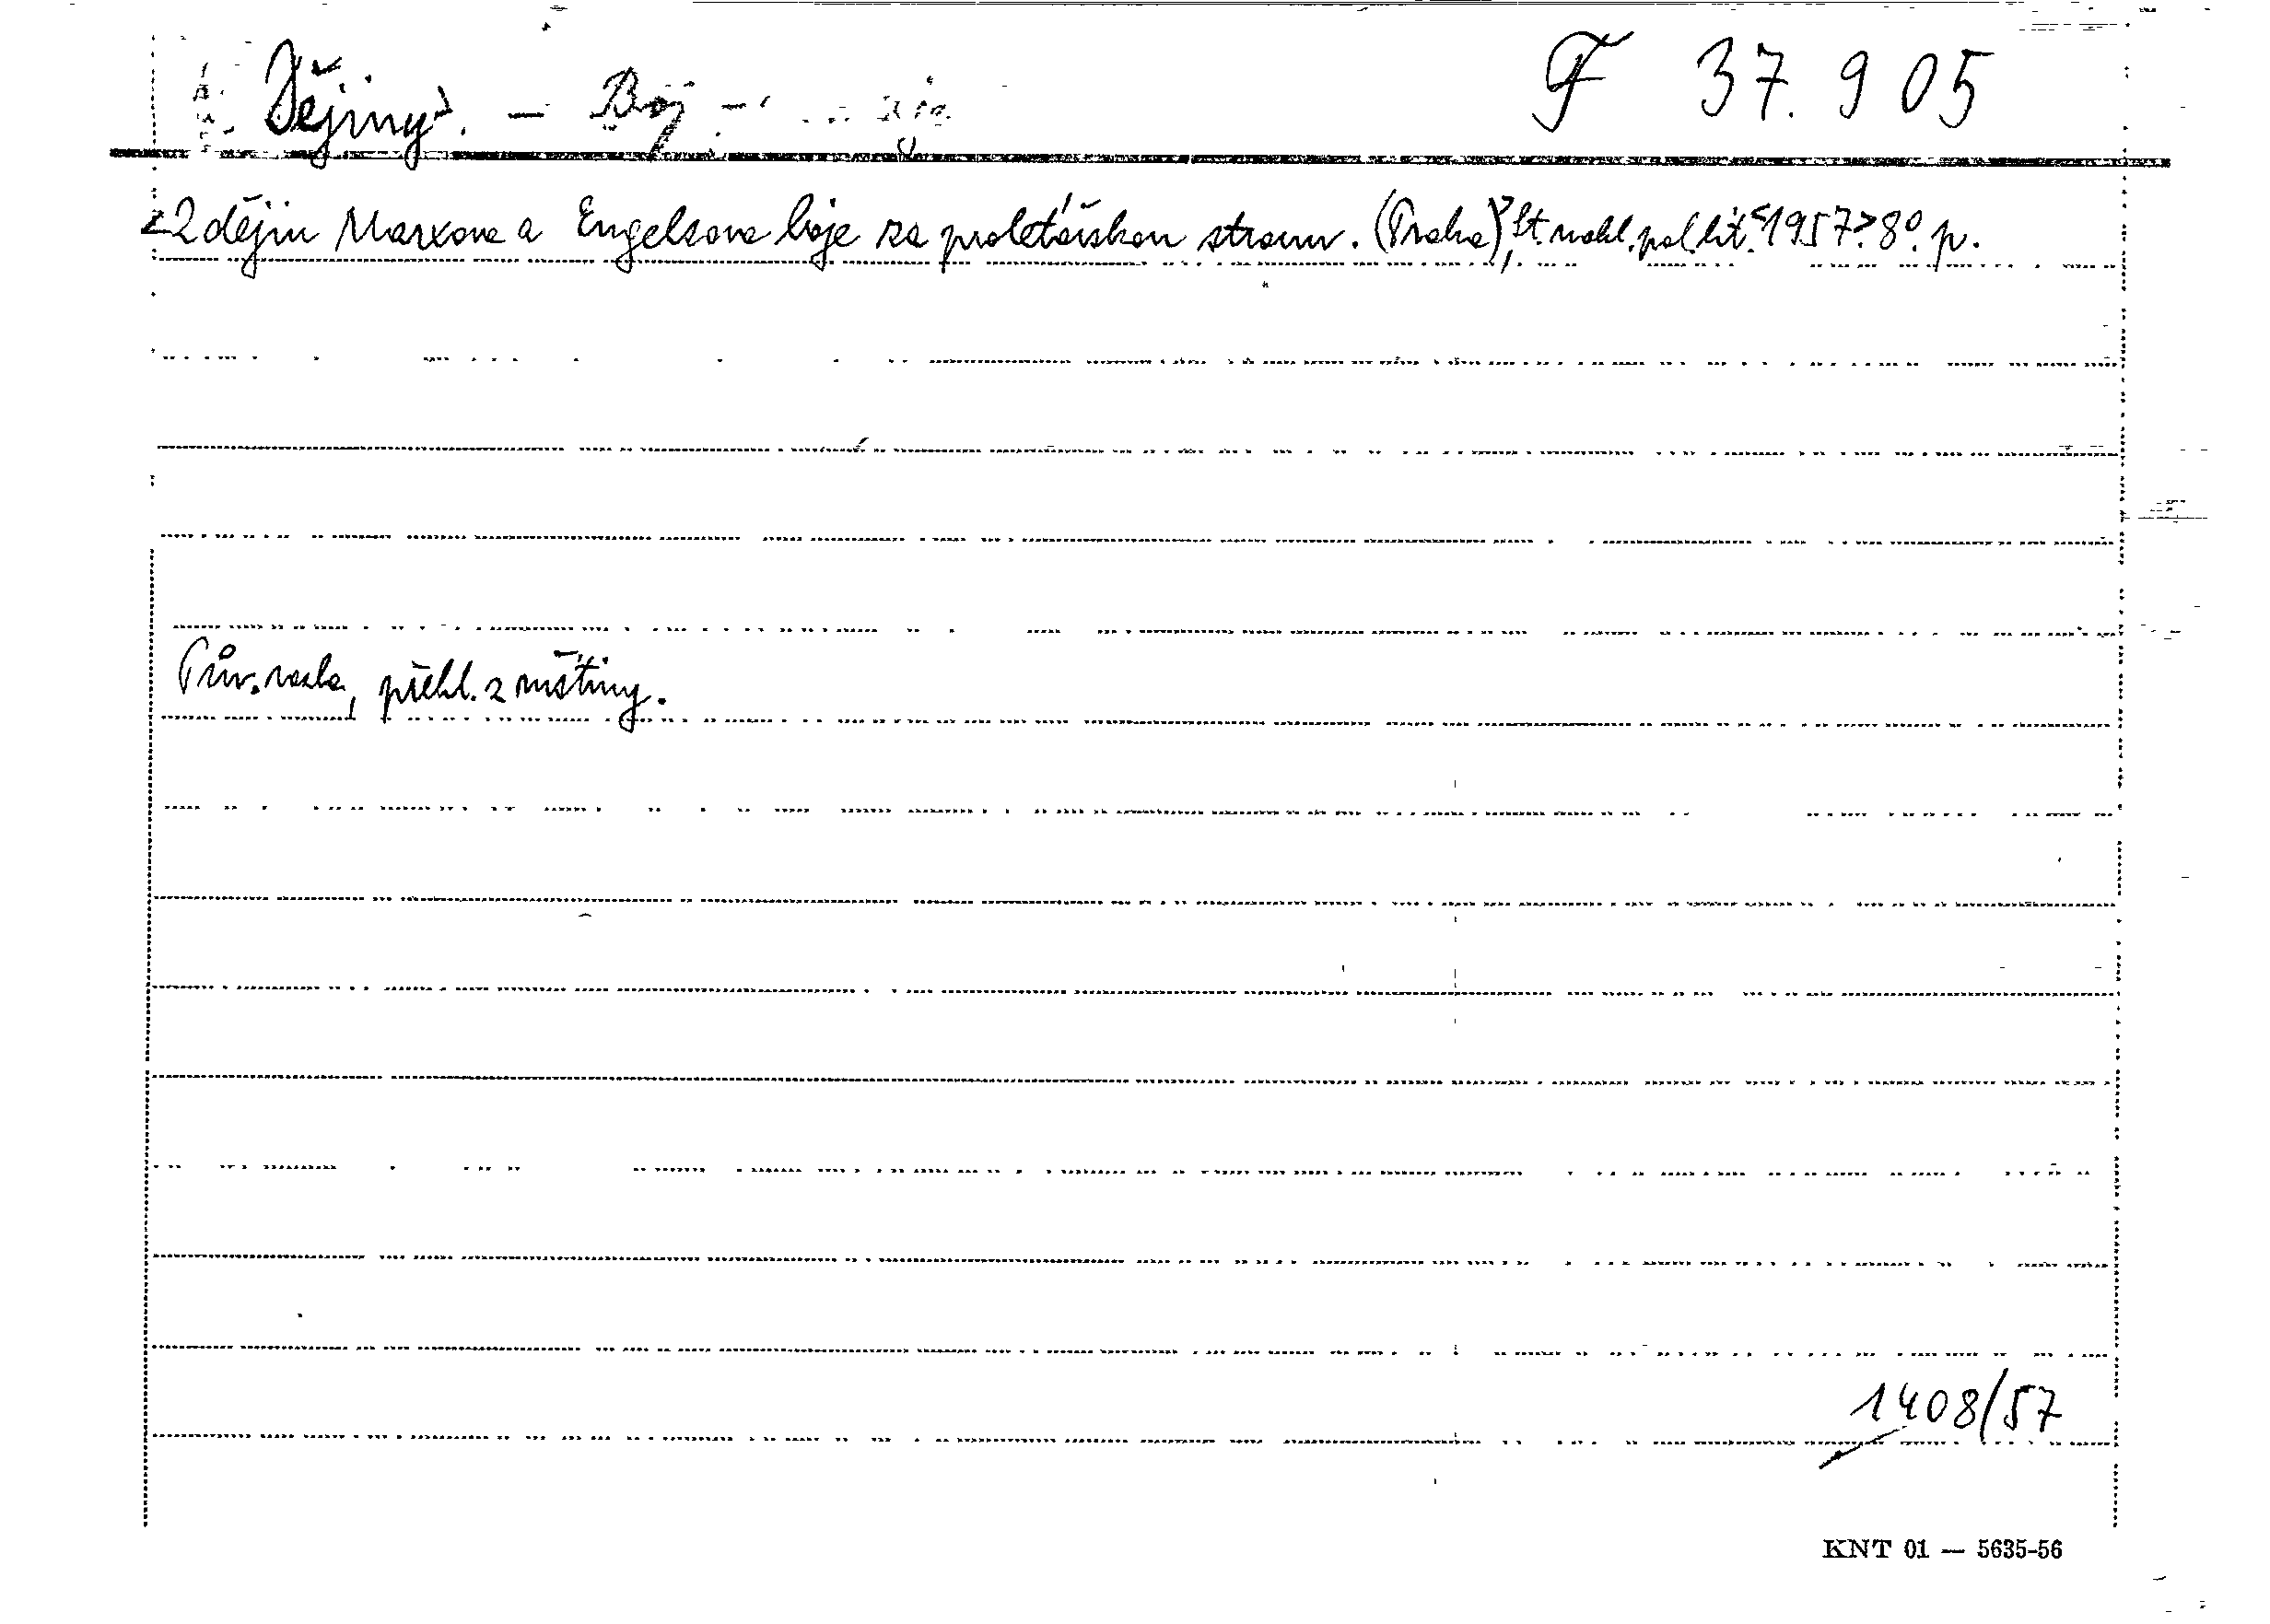 Dějiny. – Boj –
F 37.905
Z dějin Marxova a Engelsova boje za proletářskou stranu. (Praha), St. nakl. pol. lit. <1957> 8°. p.
Pův. vazba, překl. z ruštiny.
1408/57
KNT 01 — 5635-56